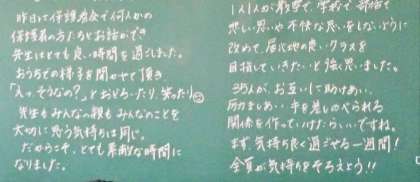 昨日に保護者会で何人かの
保護者の方たちとお話ができ
先生はとても良い時間を過ごしました。
おうちでの様子を聞かせて頂き
「えっ、そうなの?」とおどろいたり、笑ったり
先生もみんなの親もみんなのことを
大切に思う気持ちは同じ。
だからこそ、とても素敵な時間に
なりました。
1人1人が教室で、学校で、部活で
悲しい思いや不快な思いをしないように
改めて、居心地の良いクラスを
目指していきたいと強く思いました。
35人が、お互いに助けあい、
励ましあい、手を差しのべられる
関係を作っていけたらいいですね。
まず、気持ち良く過ごせる一週間!
全員が気持ちをそろえよう!!